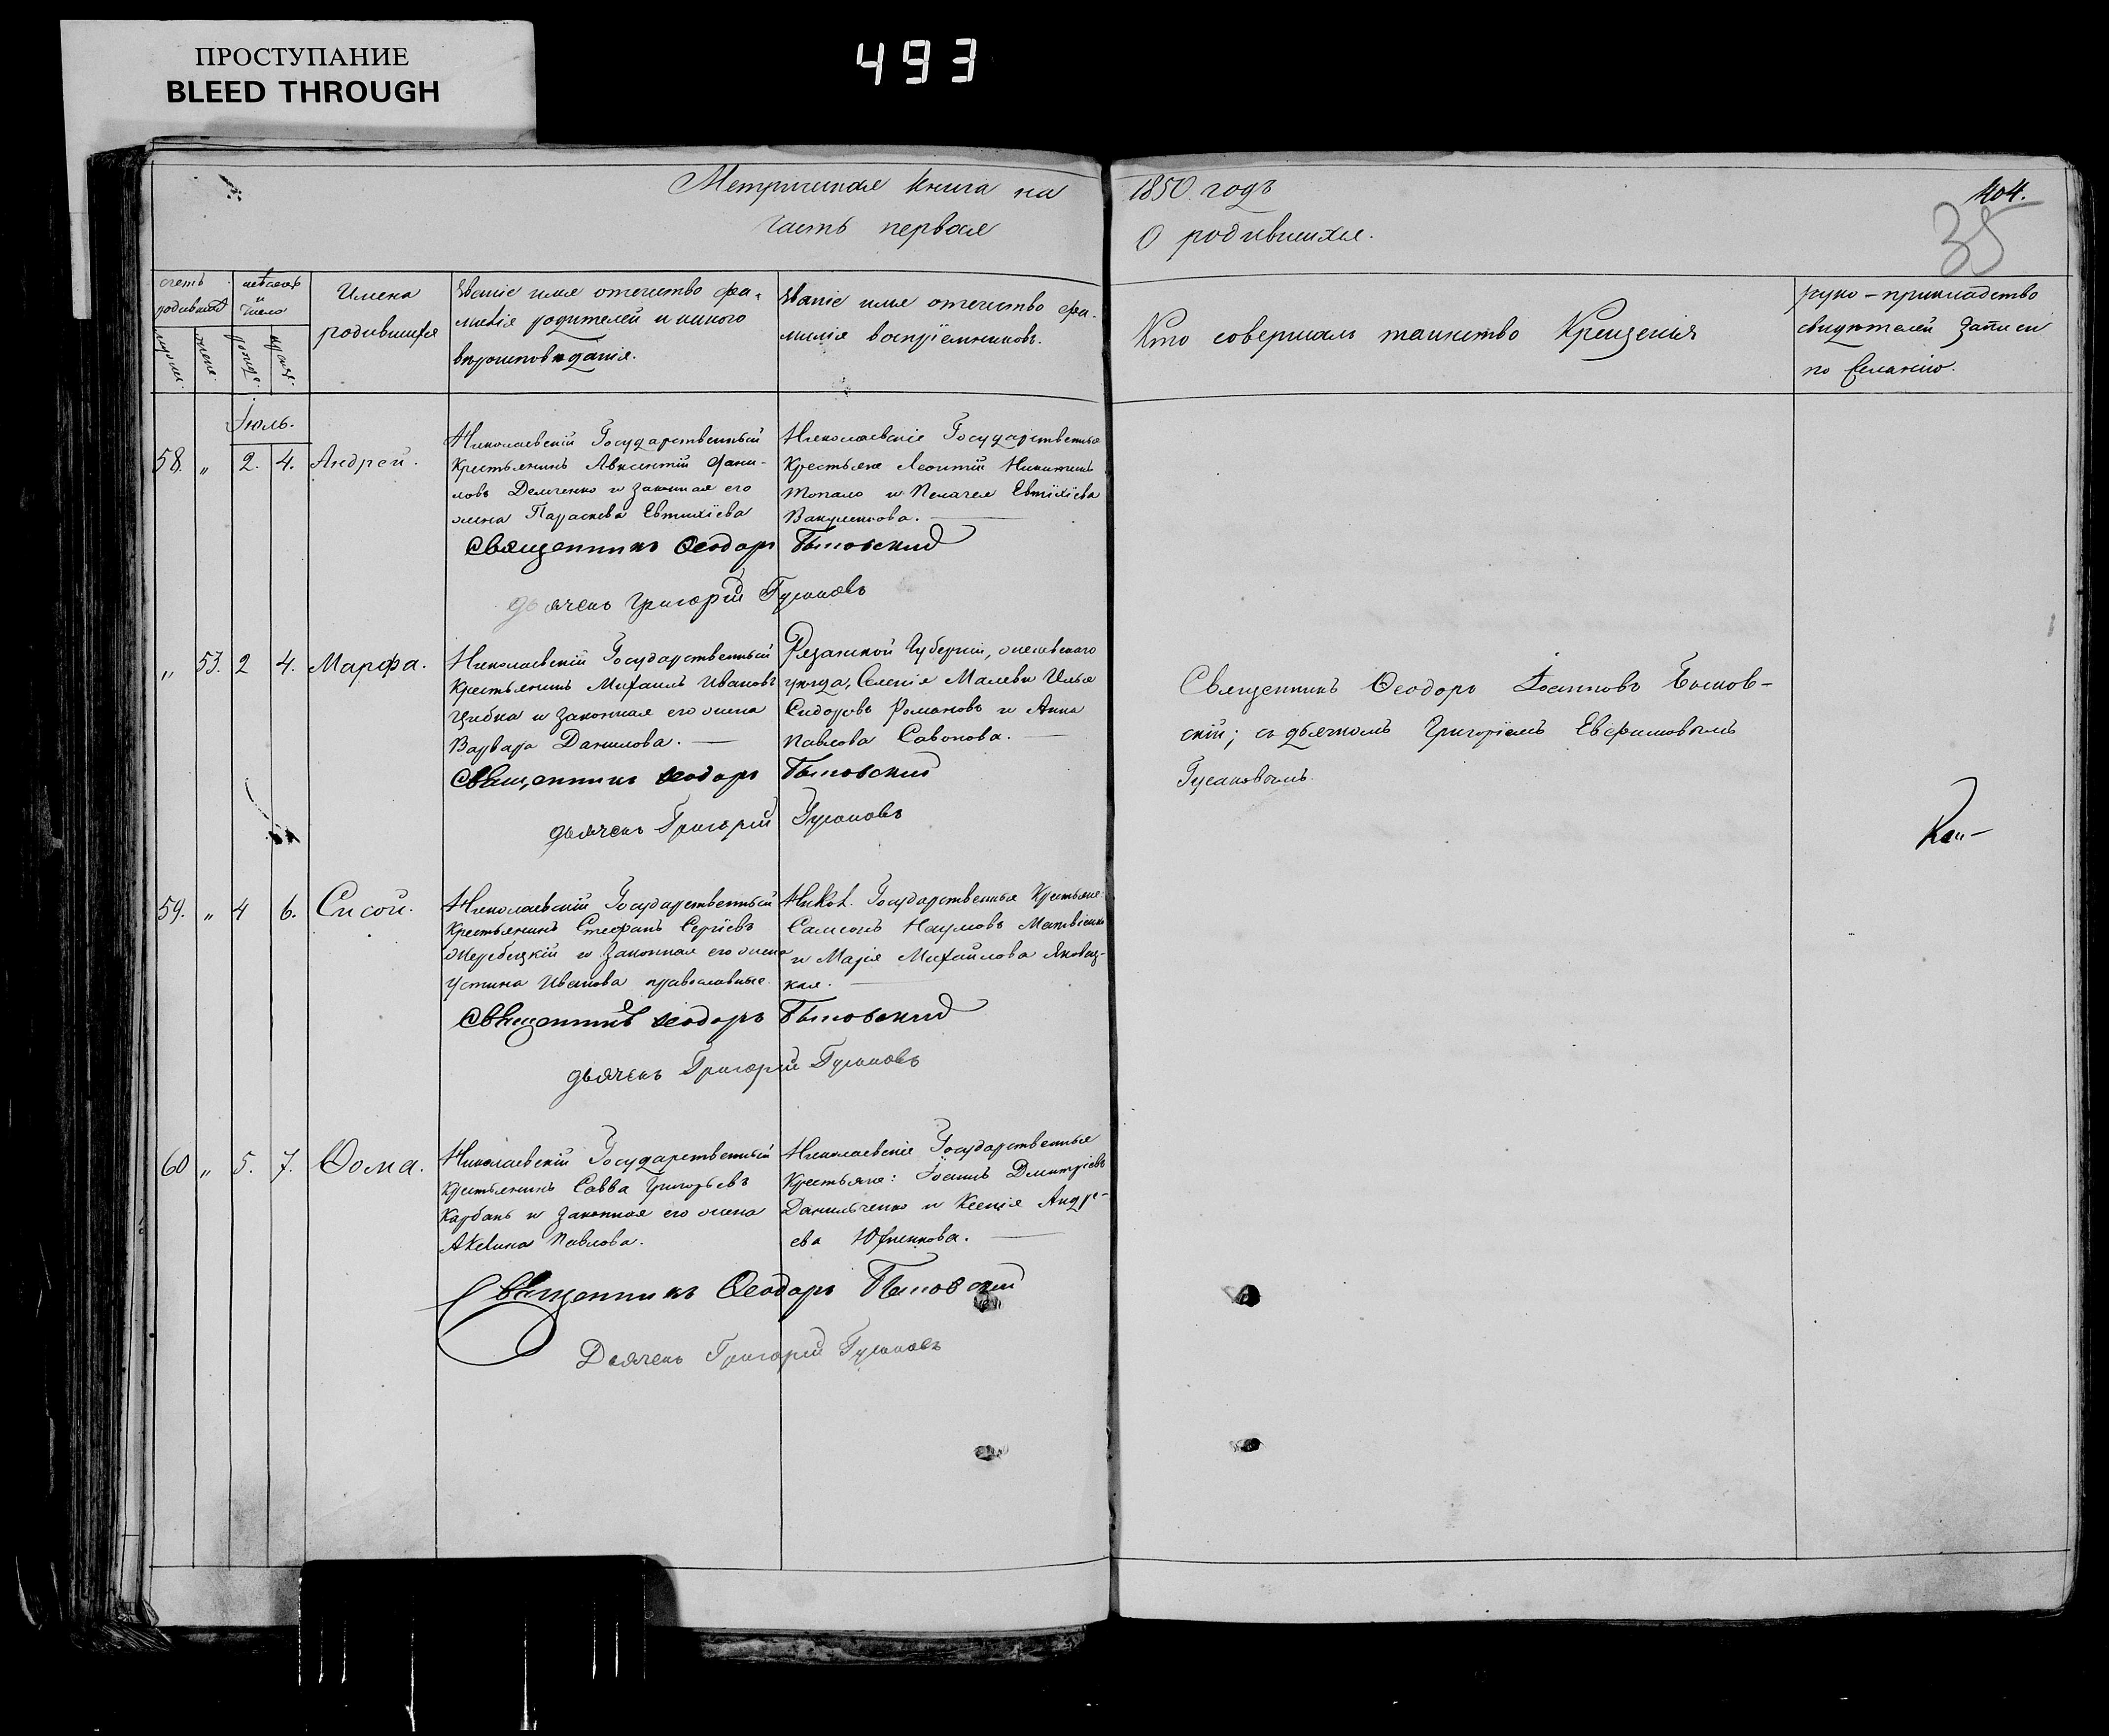 ПРОСТУПАНИЕ
BLEED THROUGH
493
Метрическая книга на 1850 годъ
404.
35
Часть первая О родившихся.
счетъ родившихся
мѣсяцъ и число
Имена родившихся
Званіе имя отечество фа-
милія родителей и какого
вѣроисповѣданія.
Званіе имя отечество фа-
милія воспріемниковъ.
Кто совершалъ таинство Крещенія
руко-прикладство
свидѣтелей записи
по желанію.
Іюль.
58. „ 2. 4. Андрей.
Николаевскій Государственный
Крестьянинъ Авксентій Дани-
ловъ Демченко и законная его
жена Параскева Евтихіева
Николаевскіе Государственные
Крестьяне Леонтій Никитинъ
Топало и Пелагея Евтихіева
Вакуленкова.
Священникъ Ѳеодоръ Быковский
дьячекъ Григорий Гусаковъ
„ 53. 2 4. Марфа.
Николаевскій Государственный
Крестьянинъ Михаилъ Ивановъ
Цибка и законная его жена
Варвара Данилова.
Рязанской Губерніи,
уезда, Селенія Малевки Илья
Сидоровъ Романовъ и Анна
Павлова Савонова.
Священникъ Ѳеодоръ Быковский
дьячекъ Григорий Гусаковъ
Священникъ Ѳеодоръ Іоанновъ Быков-
скій; съ дьячкомъ Григоріемъ Евфимовымъ
Гусаковымъ.
59. „ 4 6. Сисой.
Николаевскій Государственный
Крестьянинъ Стефанъ Сергіевъ
Жеребецкій и законная его жена
Устина Иванова православные.
Никол. Государственные Крестьяне
Самсонъ Наумовъ Матвіенко
и Марія Михайлова Яновиц-
кая.
Священникъ Ѳеодоръ Быковский
дьячекъ Григорий Гусаковъ
60 „ 5. 7. Ѳома.
Николаевскій Государственный
Крестьянинъ Савва Григорьевъ
Карбань и законная его жена
Акелина Павлова.
Николаевскіе Государственные
Крестьяне: Іоаннъ Дмитріевъ
Данильченко и Ксенія Андре-
ева
Священникъ Ѳеодоръ Быковский
Дьячекъ Григорий Гусаковъ